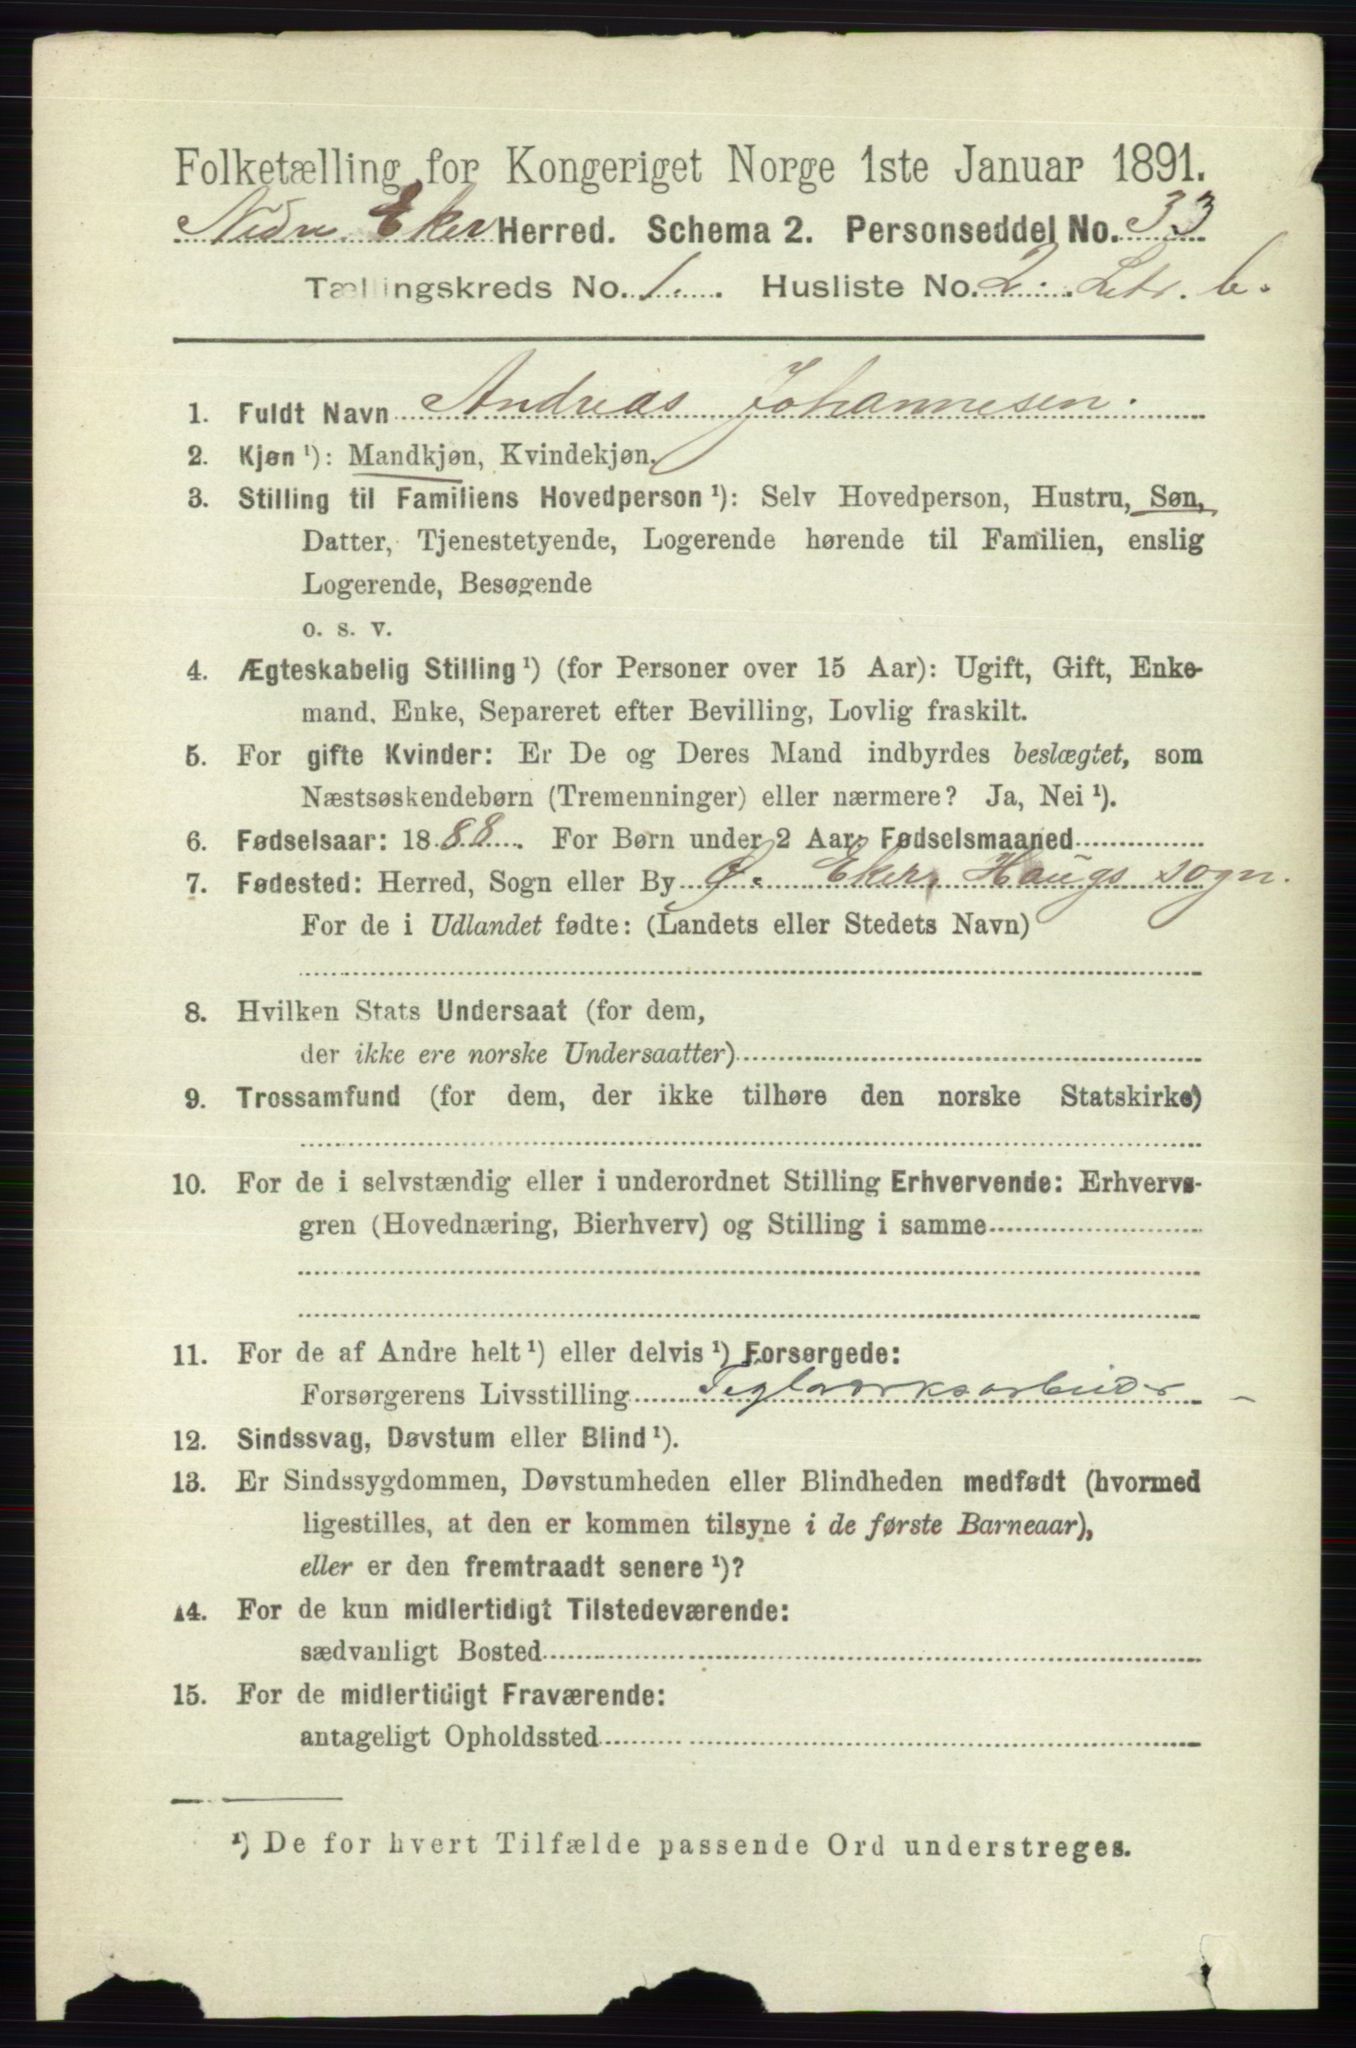 Folketælling for Kongeriget Norge 1ste Januar 1891.
Nedre Eker Herred. Schema 2. Personseddel No. 33
Tællingskreds No. 1. Husliste No. 2. Litr. b.
1. Fuldt Navn Andreas Johannesen.
2. Kjøn ¹): Mandkjøn, Kvindekjøn.
3. Stilling til Familiens Hovedperson ¹): Selv Hovedperson, Hustru, Søn,
Datter, Tjenestetyende, Logerende hørende til Familien, enslig
Logerende, Besøgende
o. s. v.
4. Ægteskabelig Stilling ¹) (for Personer over 15 Aar): Ugift, Gift, Enke-
mand, Enke, Separeret efter Bevilling, Lovlig fraskilt.
5. For gifte Kvinder: Er De og Deres Mand indbyrdes beslægtet, som
Næstsøskendebørn (Tremenninger) eller nærmere? Ja, Nei ¹).
6. Fødselsaar: 1888. For Børn under 2 Aar: Fødselsmaaned
7. Fødested: Herred, Sogn eller By Ø. Eker, Haugs sogn.
For de i Udlandet fødte: (Landets eller Stedets Navn)
8. Hvilken Stats Undersaat (for dem,
der ikke ere norske Undersaatter)
9. Trossamfund (for dem, der ikke tilhøre den norske Statskirke)
10. For de i selvstændig eller i underordnet Stilling Erhvervende: Erhvervs-
gren (Hovednæring, Bierhverv) og Stilling i samme
11. For de af Andre helt ¹) eller delvis ¹) Forsørgede:
Forsørgerens Livsstilling Teglværksarbeider
12. Sindssvag, Døvstum eller Blind ¹).
13. Er Sindssygdommen, Døvstumheden eller Blindheden medfødt (hvormed
ligestilles, at den er kommen tilsyne i de første Barneaar),
eller er den fremtraadt senere ¹)?
14. For de kun midlertidigt Tilstedeværende:
sædvanligt Bosted
15. For de midlertidigt Fraværende:
antageligt Opholdssted
¹) De for hvert Tilfælde passende Ord understreges.